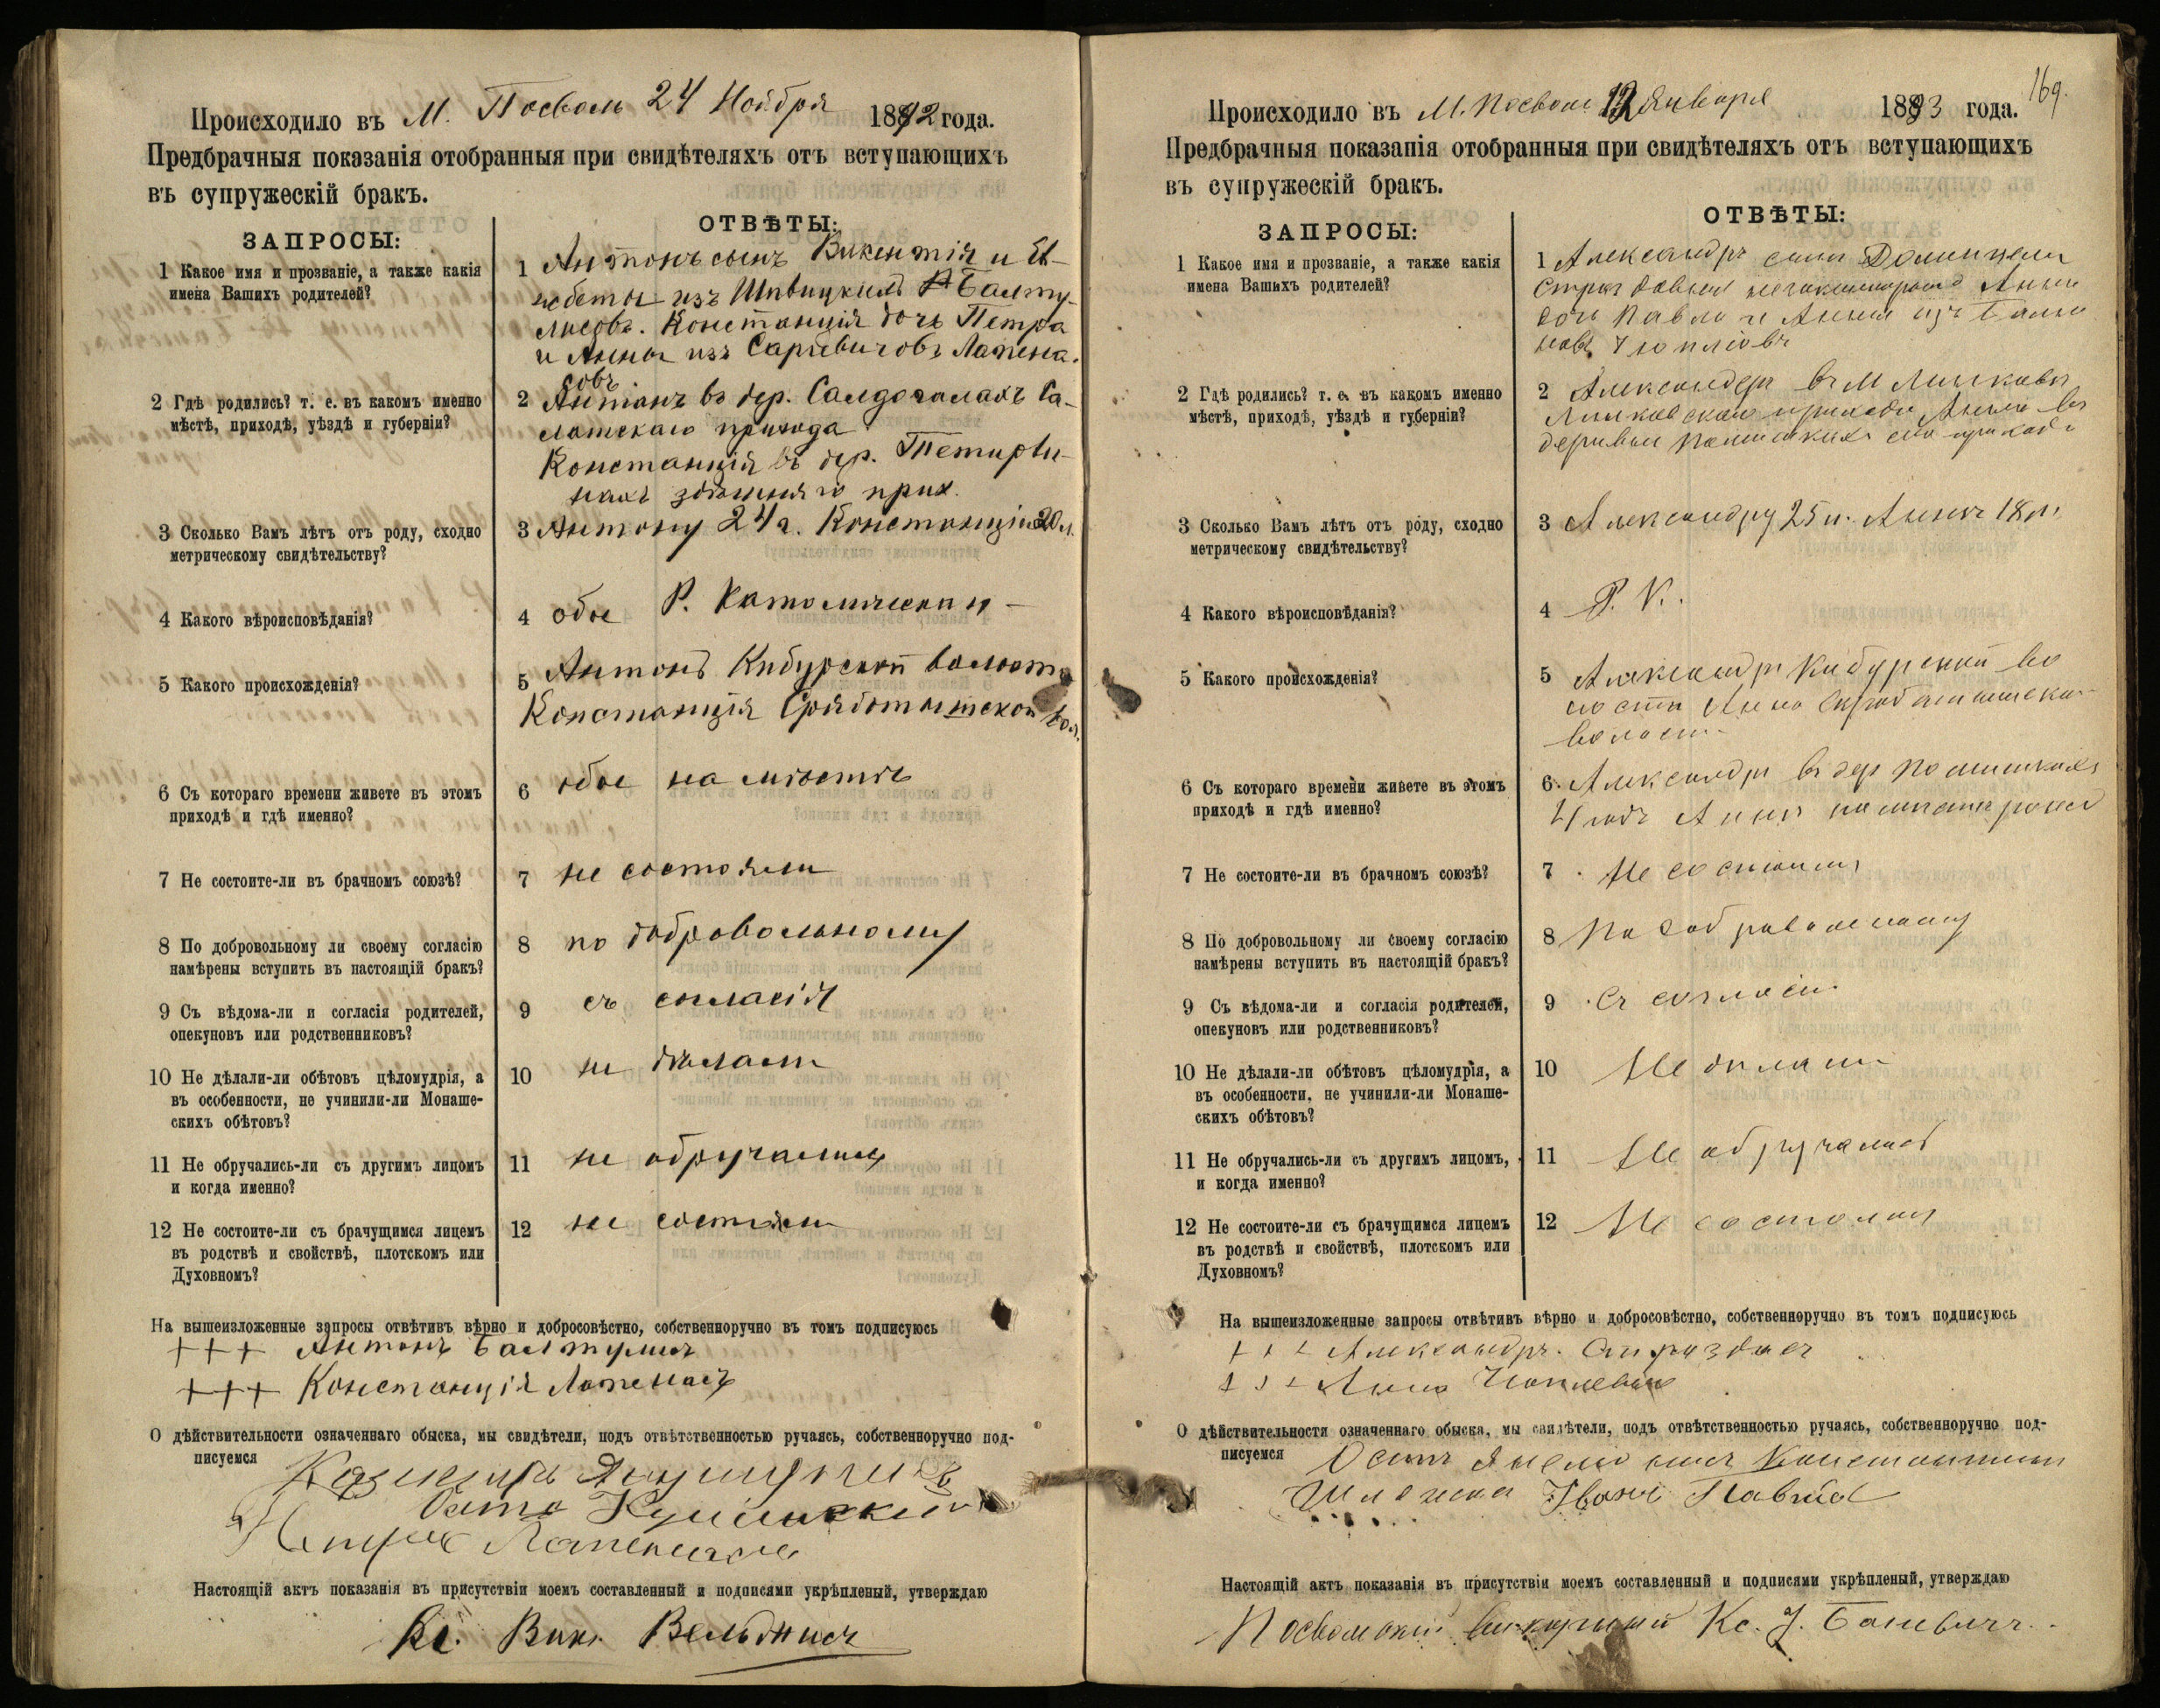 Происходило въ М. Посволь 24 Ноября 1892 года.
Предбрачныя показанія отобранныя при свидѣтеляхъ отъ вступающихъ
въ супружескій бракъ.
ЗАПРОСЫ:
ОТВѢТЫ:
1 Какое имя и прозваніе, а также какія
имена Вашихъ родителей?
1 Антонъ сынъ Викентія и Ел-
исбеты изъ Балту-
лисовъ. Констанція дочь Петра
и Анны изъ Лапена-
совъ
2 Гдѣ родились? т. е. въ какомъ именно
мѣстѣ, приходѣ, уѣздѣ и губерніи?
2 Антонъ въ дер. Салдогалахъ Са-
латскаго прихода
Констанція въ дер. Тетирви-
нахъ здѣшняго прих.
3 Сколько Вамъ лѣтъ отъ роду, сходно
метрическому свидѣтельству?
3 Антону 24 г. Констанціи 20 л.
4 Какого вѣроисповѣданія?
4 обое Р. Католическаго
5 Какого происхожденія?
5 Антонъ Кибурской волости
Констанція вол.
6 Съ котораго времени живете въ этомъ
приходѣ и гдѣ именно?
6 обое на мѣстѣ
7 Не состоите-ли въ брачномъ союзѣ?
7 не состояли
8 По добровольному ли своему согласію
намѣрены вступить въ настоящій бракъ?
8 по добровольному
9 Съ вѣдома-ли и согласія родителей,
опекуновъ или родственниковъ?
9 съ согласія
10 Не дѣлали-ли обѣтовъ цѣломудрія, а
въ особенности, не учинили-ли Монаше-
скихъ обѣтовъ?
10 не дѣлали
11 Не обручались-ли съ другимъ лицомъ
и когда именно?
11 не обручались
12 Не состоите-ли съ брачущимся лицемъ
въ родствѣ и свойствѣ, плотскомъ или
Духовномъ?
12 не состояли
На вышеизложенные запросы отвѣтивъ вѣрно и добросовѣстно, собственноручно въ томъ подписуюсь
+++ Антонъ Балтулисъ
+++ Констанція Лапенасъ
О дѣйствительности означеннаго обыска, мы свидѣтели, подъ отвѣтственностью ручаясь, собственноручно под-
писуемся
Петръ
Настоящій актъ показанія въ присутствіи моемъ составленный и подписями укрѣпленый, утверждаю
Кс. Вик. Вельджисъ
169.
Происходило въ М. Посволь Января 1893 года.
Предбрачныя показанія отобранныя при свидѣтеляхъ отъ вступающихъ
въ супружескій бракъ.
ЗАПРОСЫ:
ОТВѢТЫ:
1 Какое имя и прозваніе, а также какія
имена Вашихъ родителей?
1 Александръ сынъ
Анна
дочь Павла и Анны изъ
2 Гдѣ родились? т. е. въ какомъ именно
мѣстѣ, приходѣ, уѣздѣ и губерніи?
2 Александръ въ М Линковѣ
Линковскаго прихода Анна въ
деревни прихода
3 Сколько Вамъ лѣтъ отъ роду, сходно
метрическому свидѣтельству?
3 Александру 25 л. Аннѣ 18 л.
4 Какого вѣроисповѣданія?
4 Р. К.
5 Какого происхожденія?
5 Александръ Кибурской во
лости Анна
волости
6 Съ котораго времени живете въ этомъ
приходѣ и гдѣ именно?
6 Александръ въ дер
Анна
7 Не состоите-ли въ брачномъ союзѣ?
7 Не состояли
8 По добровольному ли своему согласію
намѣрены вступить въ настоящій бракъ?
8 По добровольному
9 Съ вѣдома-ли и согласія родителей,
опекуновъ или родственниковъ?
9 Съ согласія
10 Не дѣлали-ли обѣтовъ цѣломудрія, а
въ особенности, не учинили-ли Монаше-
скихъ обѣтовъ?
10 Не дѣлали
11 Не обручались-ли съ другимъ лицомъ,
и когда именно?
11 Не обручались
12 Не состоите-ли съ брачущимся лицемъ
въ родствѣ и свойствѣ, плотскомъ или
Духовномъ?
12 Не состояли
На вышеизложенные запросы отвѣтивъ вѣрно и добросовѣстно, собственноручно въ томъ подписуюсь
+++ Александръ Страздасъ
+++ Анна
О дѣйствительности означеннаго обыска, мы свидѣтели, подъ отвѣтственностью ручаясь, собственноручно под-
писуемся Осипъ Константинъ
Иванъ
Настоящій актъ показанія въ присутствіи моемъ составленный и подписями укрѣпленый, утверждаю
Посвольскій викарный Кс. І.